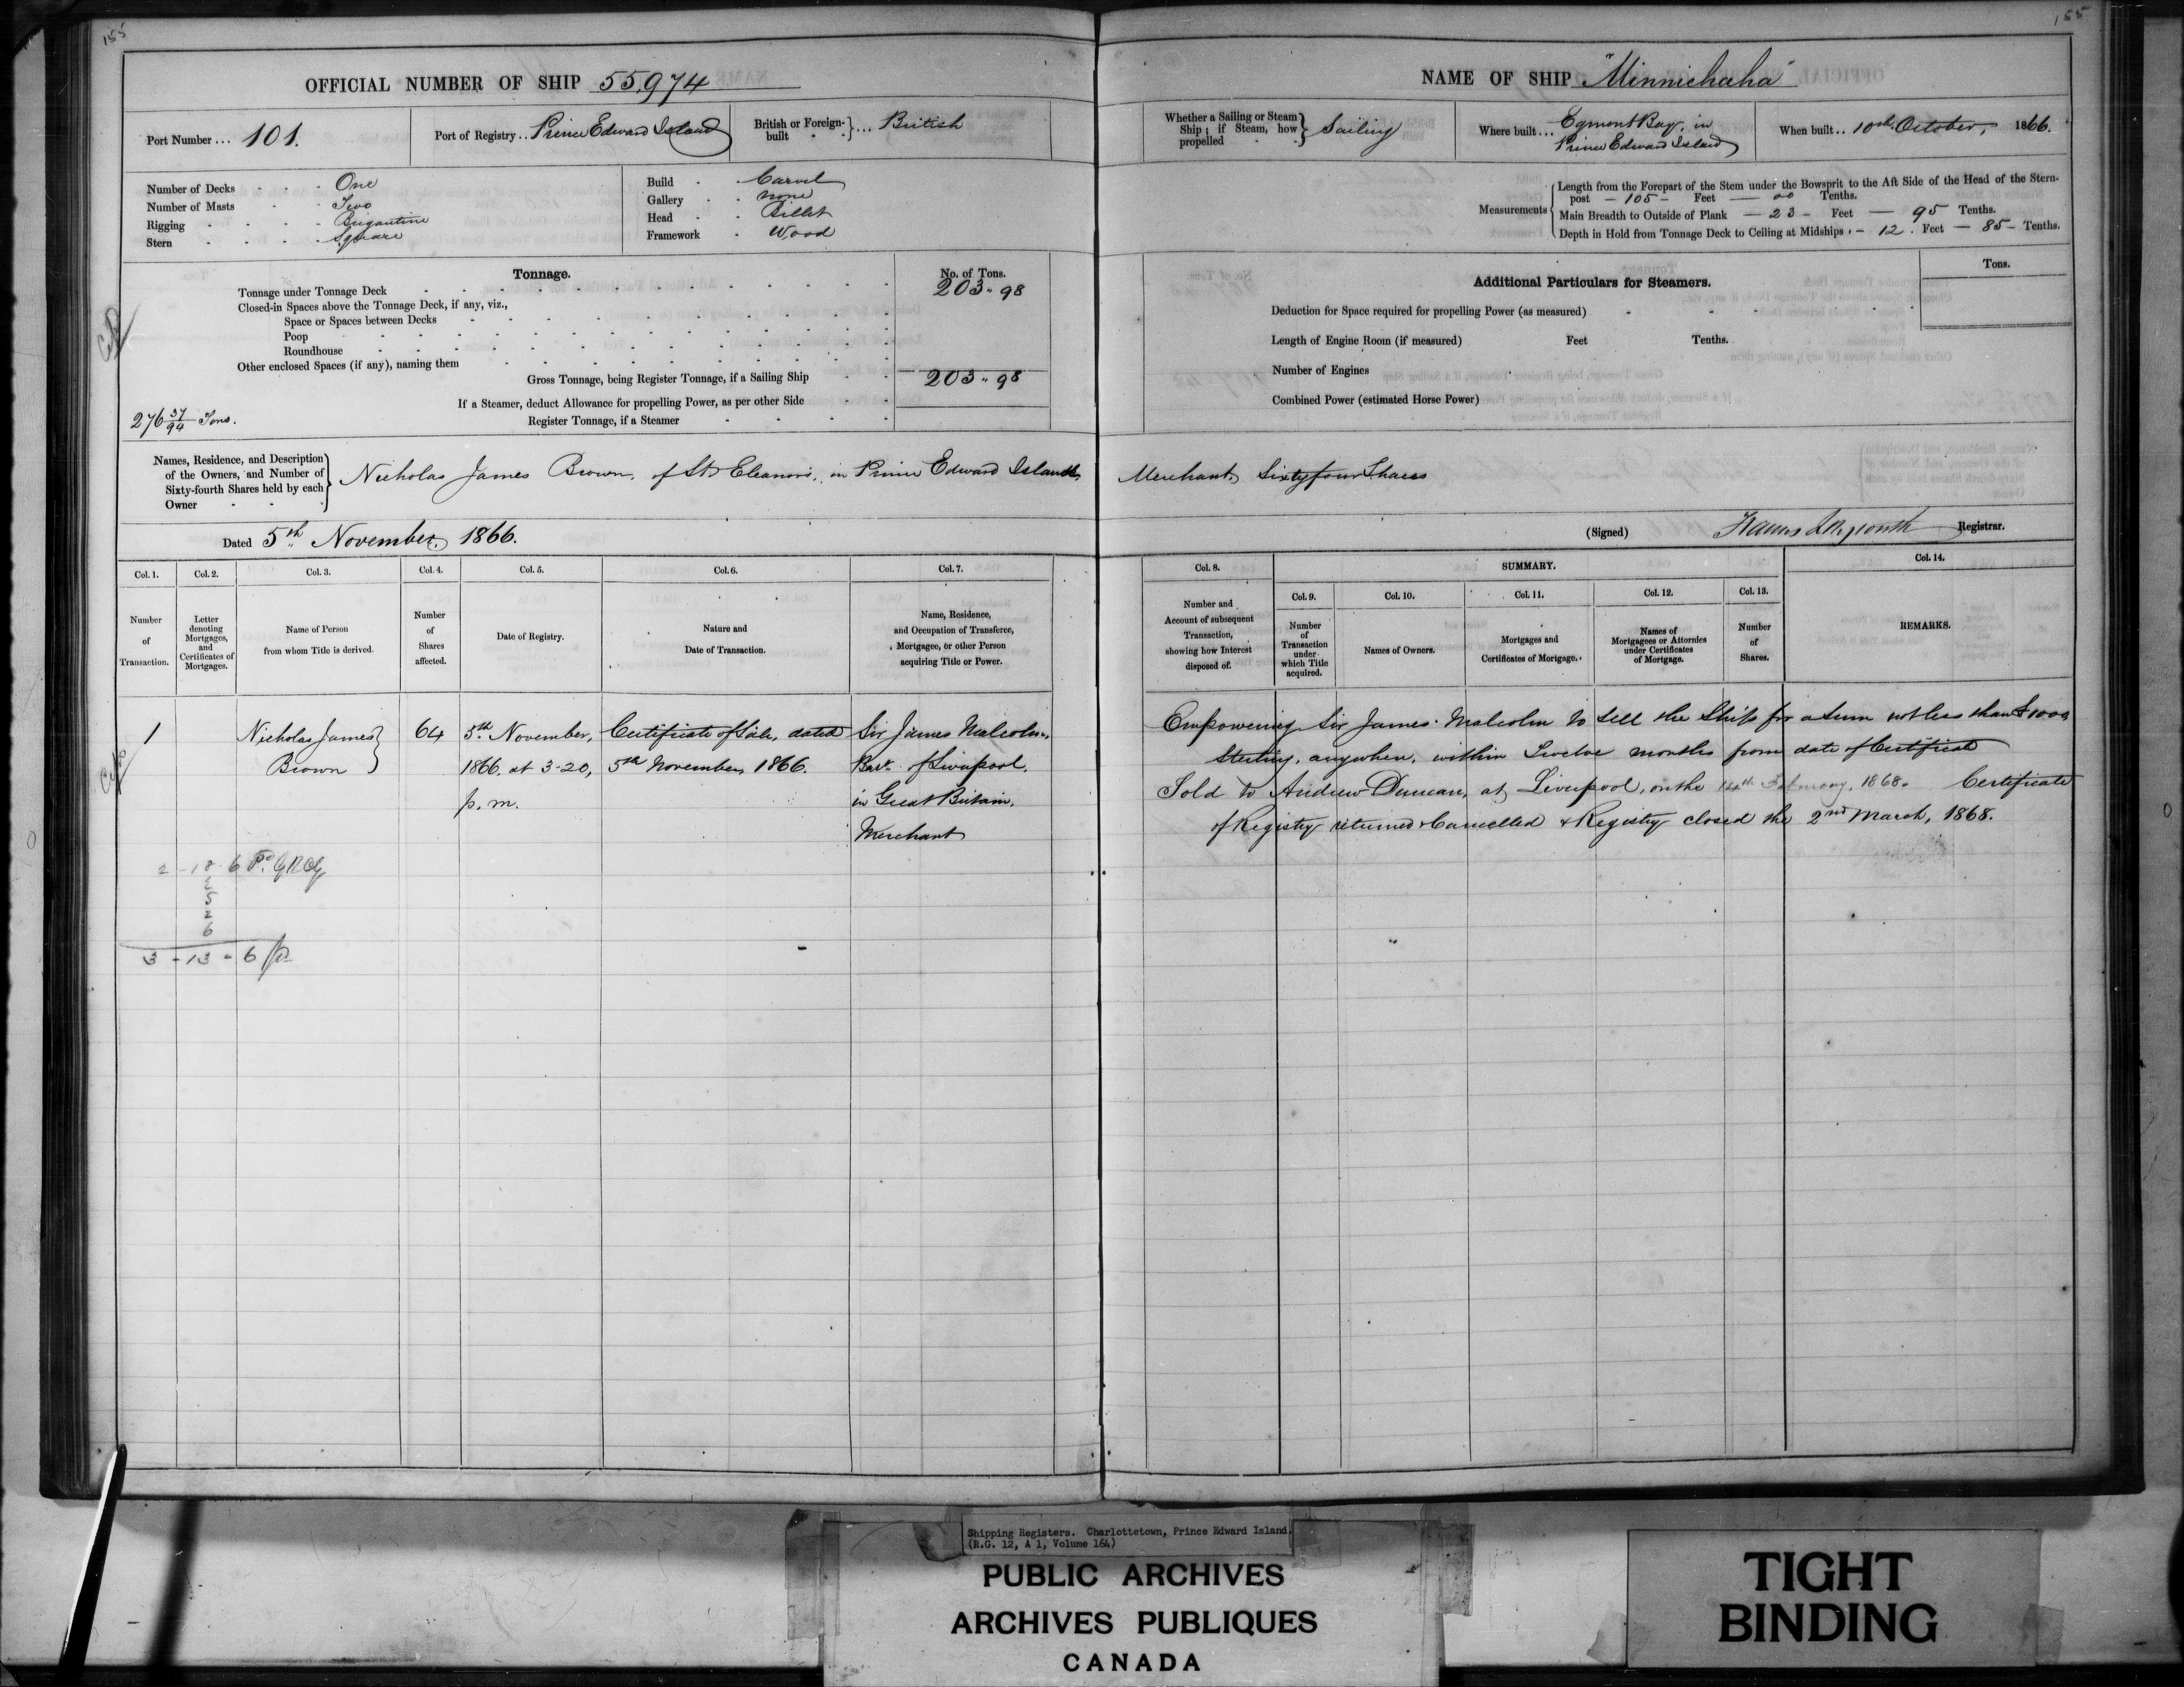 155
OFFICIAL NUMBER OF SHIP 55,974
Port Number ... 101.
Port of Registry .. Prince Edward Island
British or Foreign-built } ... British
Number of Decks - - - One
Number of Masts - - - Two
Rigging - - - - Brigantine
Stern - - - - Square
Build - Carvel
Gallery - - none
Head - - Billet
Framework - Wood
Tonnage.
No. of Tons.
Tonnage under Tonnage Deck 203 " 98
Closed-in Spaces above the Tonnage Deck, if any, viz.,
Space or Spaces between Decks
Poop
Roundhouse
Other enclosed Spaces (if any), naming them
Gross Tonnage, being Register Tonnage, if a Sailing Ship 203 " 98
If a Steamer, deduct Allowance for propelling Power, as per other Side
276 37/94 Tons.
Register Tonnage, if a Steamer
Names, Residence, and Description
of the Owners, and Number of
Sixty-fourth Shares held by each
Owner
Nicholas James Brown, of St. Eleanors, in Prince Edward Island,
Dated 5th November, 1866.
Col. 1. Col. 2. Col. 3. Col. 4. Col. 5. Col. 6. Col. 7.
Number
of
Transaction.
Letter
denoting
Mortgages,
and
Certificates of
Mortgages.
Name of Person
from whom Title is derived.
Number
of
Shares
affected.
Date of Registry.
Nature and
Date of Transaction.
Name, Residence,
and Occupation of Transferee,
Mortgagee, or other Person
acquiring Title or Power.
1
Nicholas James
Brown
64
5th November,
1866. at 3-20,
p. m.
Certificate of Sale, dated
5th November, 1866.
Sir James Malcolm,
Bart. of Liverpool,
in Great Britain,
Merchant
2 - 18 - 6
2
5
2
6
3 - 13 - 6
155
NAME OF SHIP "Minnichaha"
Whether a Sailing or Steam
Ship; if Steam, how
propelled
Sailing
Where built ... Egmont Bay, in
Prince Edward Island
When built .. 10th October, 1866.
Measurements
Length from the Forepart of the Stem under the Bowsprit to the Aft Side of the Head of the Stern-
post - 105 - Feet - 00 Tenths.
Main Breadth to Outside of Plank - 23 - Feet - 95 Tenths.
Depth in Hold from Tonnage Deck to Ceiling at Midships - 12. Feet - 85 - Tenths.
Additional Particulars for Steamers.
Tons.
Deduction for Space required for propelling Power (as measured)
Length of Engine Room (if measured) Feet Tenths.
Number of Engines
Combined Power (estimated Horse Power)
Merchant, Sixty four Shares
(Signed) Registrar.
Col. 8. SUMMARY. Col. 14.
Col. 9. Col. 10. Col. 11. Col. 12. Col. 13.
Number and
Account of subsequent
Transaction,
showing how Interest
disposed of.
Number
of
Transaction
under
which Title
acquired.
Names of Owners.
Mortgages and
Certificates of Mortgage.
Names of
Mortgagees or Attornies
under Certificates
of Mortgage.
Number
of
Shares.
REMARKS.
Empowering Sir James Malcolm to sell the Ship for a sum not less than £1000
Sterling, anywhere, within Twelve months from date of Certificate
Sold to Andrew Duncan, at Liverpool, on the 14th February, 1868. Certificate
of Registry returned & Cancelled & Registry closed the 2nd March, 1868.
Shipping Registers. Charlottetown, Prince Edward Island.
(R.G. 12, A 1, Volume 164)
PUBLIC ARCHIVES
ARCHIVES PUBLIQUES
CANADA
TIGHT
BINDING